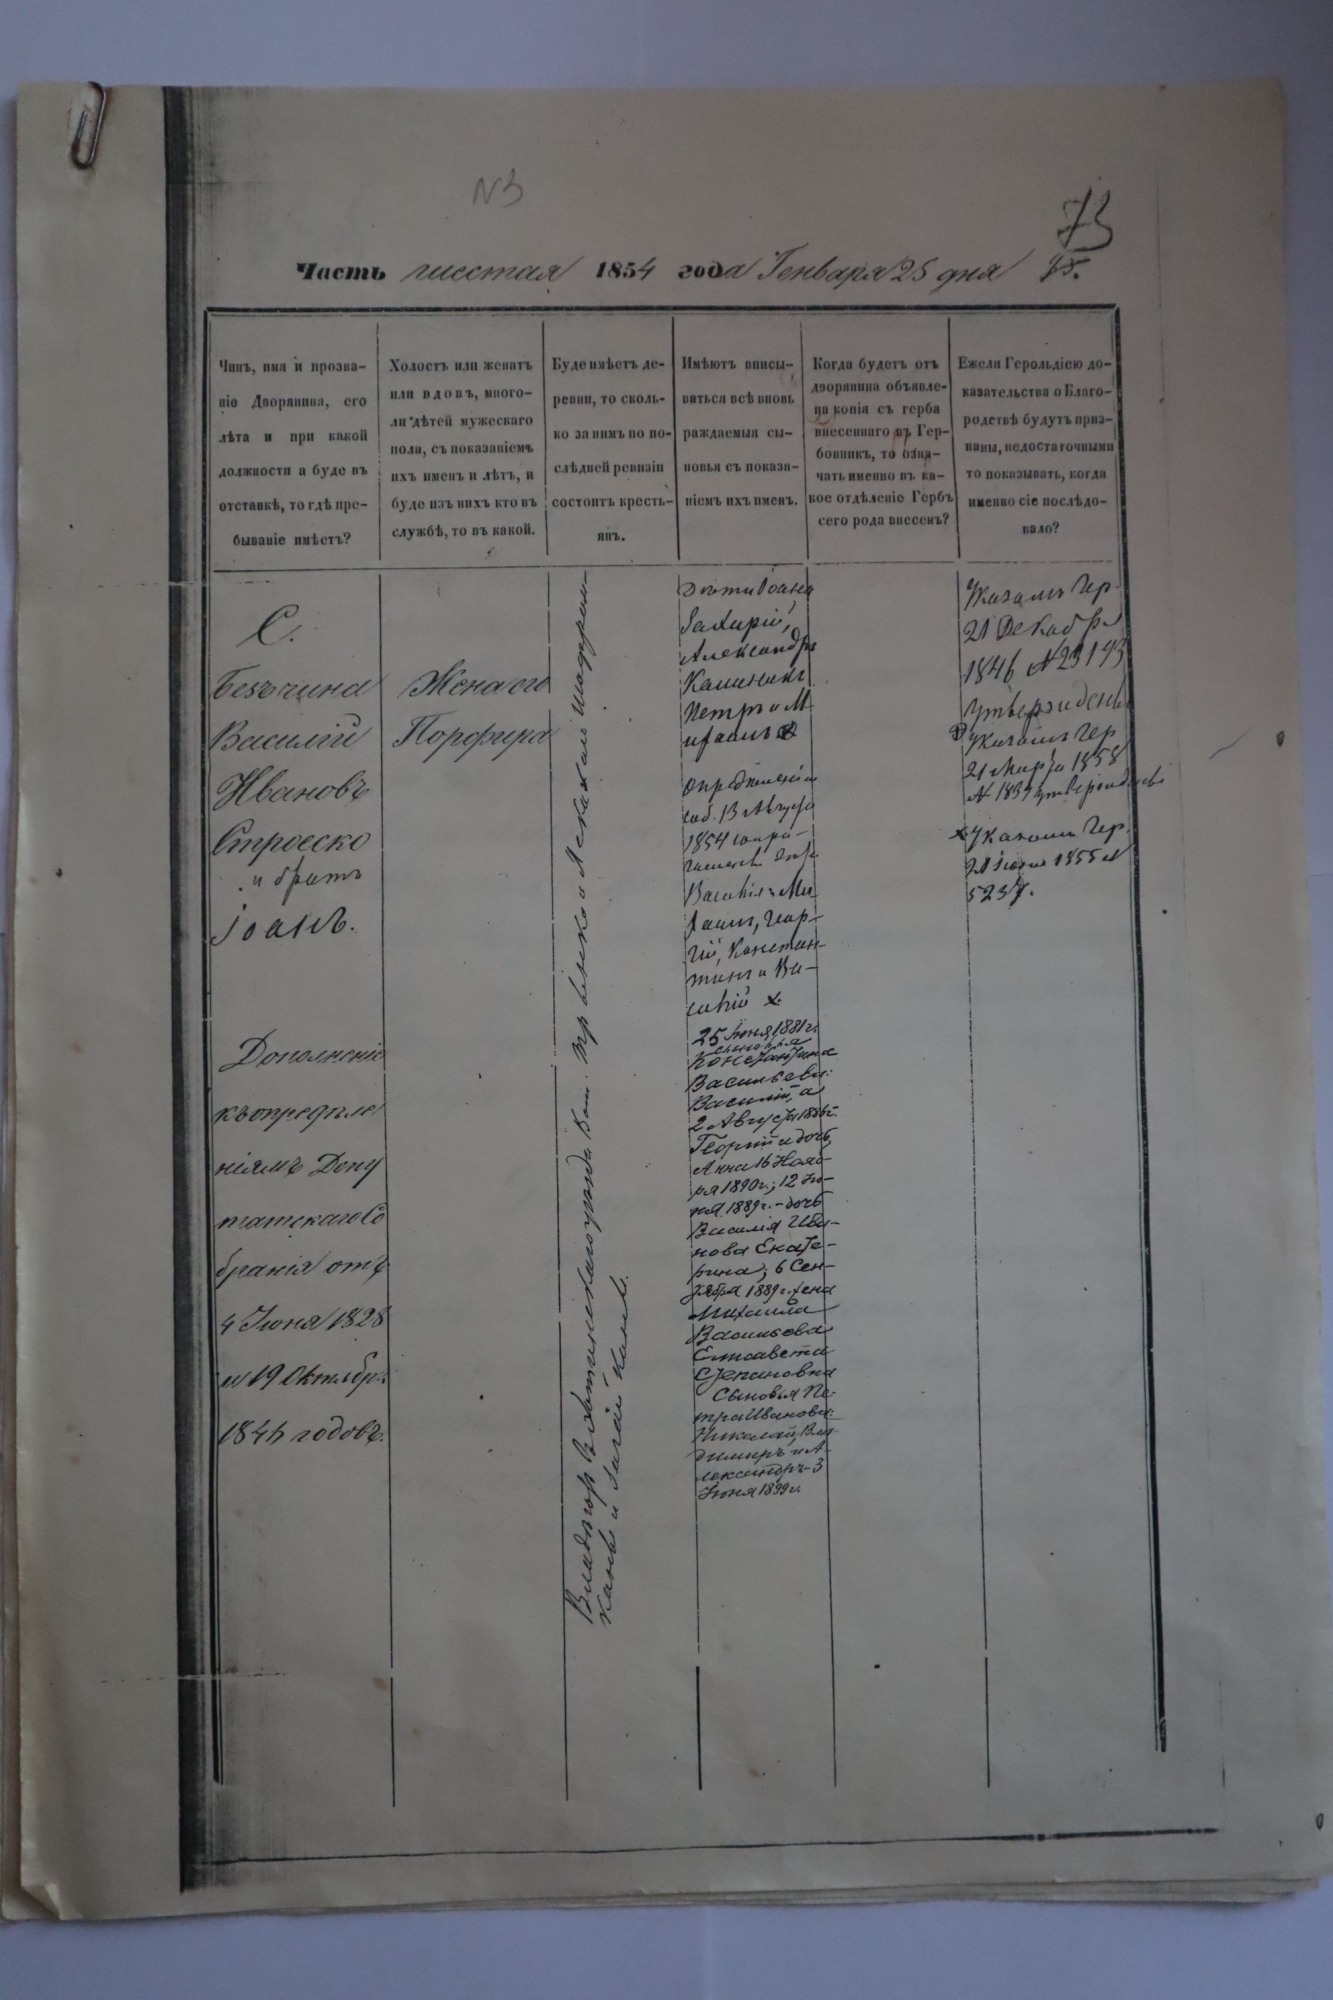 N 3
73
Часть шестая 1854 года Генваря 25 дня
Чинъ, имя и прозва-
ніе Дворянина, его
лѣта и при какой
должности а буде въ
отставкѣ, то гдѣ пре-
бываніе имѣетъ?
Холостъ или женатъ
или вдовъ, много-
ли дѣтей мужескаго
пола, съ показаніемъ
ихъ именъ и лѣтъ, и
буде изъ нихъ кто въ
службѣ, то въ какой.
Буде имѣетъ де-
ревни, то сколь-
ко за нимъ по по-
слѣдней ревизіи
состоитъ кресть-
янъ.
Имѣютъ вписы-
ваться всѣ вновь
раждаемыя сы-
новья съ показа-
ніемъ ихъ именъ.
Когда будетъ отъ
дворянина объявле-
на копія съ герба
внесеннаго въ Гер-
бовникъ, то озна-
чать именно въ ка-
кое отдѣленіе Гербъ
сего рода внесенъ?
Ежели Герольдіею до-
казательства о Благо-
родствѣ будутъ приз-
наны, недостаточными
то показывать, когда
именно сіе послѣдо-
вало?
С.
Безъ чина
Василій
Ивановъ
Строеско
и братъ
Іоанъ.
Дополненіе
къ опредѣле
ніямъ Депу
татскаго Со
бранія отъ
4 Іюня 1828
и 19 Октябр.
1844 годовъ.
Жена его
Порфира
Хотинскаго уѣзда
дѣти Іоана
Захирій,
Александръ
Калиникъ
Петръ и М
ихаилъ
опредѣленіем
соб. 13 Августа
1854
Василія Ми
хаилъ, Геор-
гій, Констан-
тинъ и Ва-
силій x.
25 Іюня 1881 г.
сыновья
Константина
Васильева:
Василій, а
2 Августа 1886 г.
Георгій и дочь
Анна 16 Нояб-
ря 1890 г.; 12 Ію-
ня 1889 г. - дочь
Василія Ива-
нова Екате-
рина; 6 Сен-
тября 1889 г. жена
Михаила
Васильева
Елисавета
Степановна
Сыновья Пе-
тра Иванова:
Николай, Вла-
димиръ и А-
лександръ - 3
Іюня 1899 г.
Указомъ Гер.
21 Декабря
1846 № 23193
утвержденъ
Указомъ Гер
21 Марта 1858
x Указомъ Гер.
1855 №
5237.